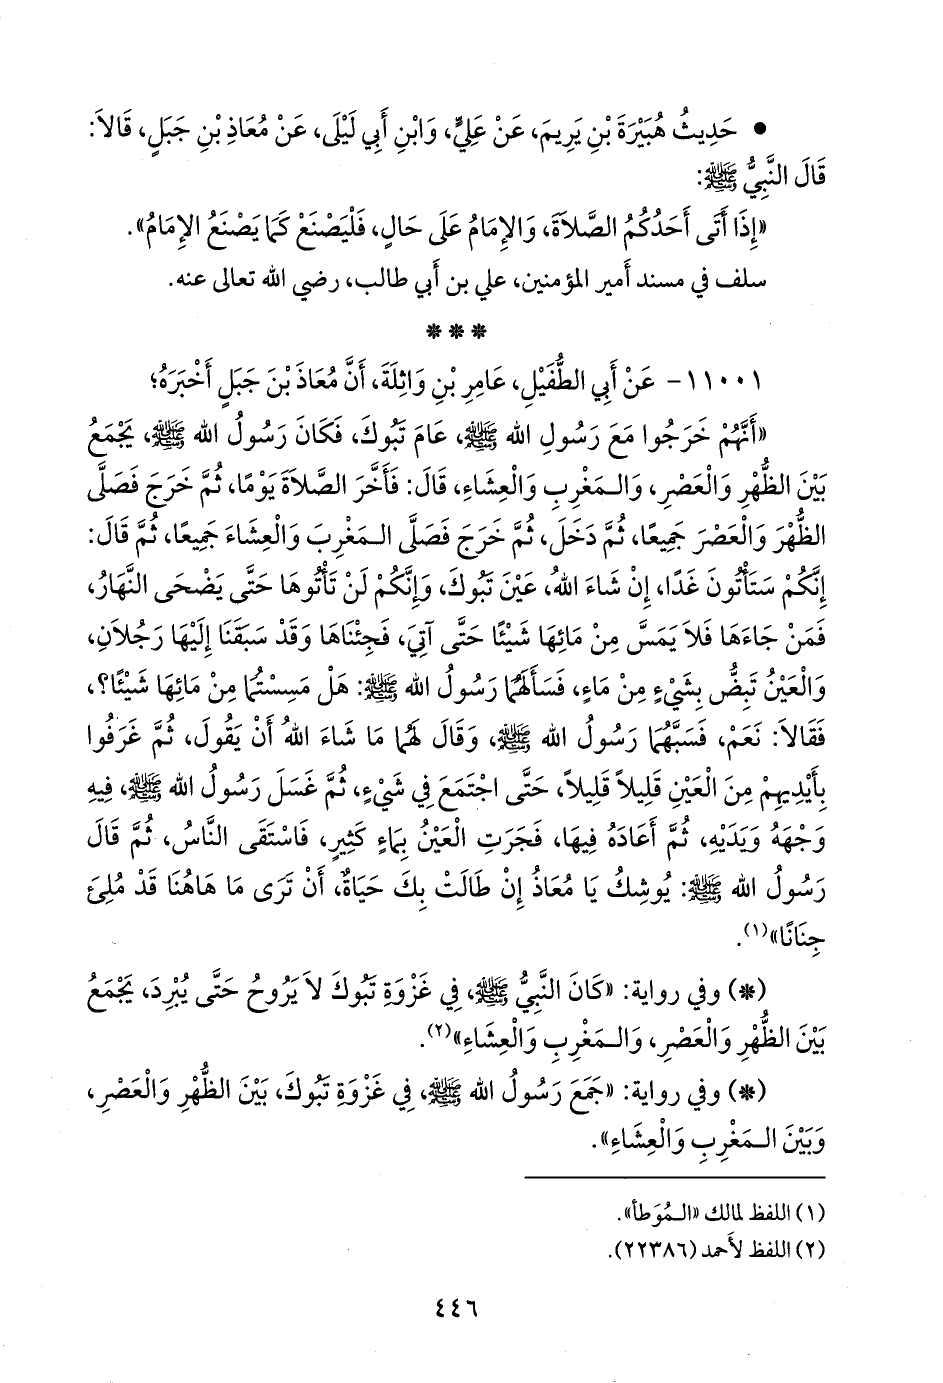 • حَدِيثُ هُبَيْرَةَ بْنِ يَرِيمَ، عَنْ عَلِيٍّ، وَابْنِ أَبِي لَيْلَى، عَنْ مُعَاذِ بْنِ جَبَلٍ، قَالاَ:
قَالَ النَّبِيُّ ﷺ:
«إِذَا أَتَى أَحَدُكُمُ الصَّلاَةَ، وَالإِمَامُ عَلَى حَالٍ، فَلْيَصْنَعْ كَمَا يَصْنَعُ الإِمَامُ».
سلف في مسند أمير المؤمنين، علي بن أبي طالب، رضي الله تعالى عنه.
***
١١٠٠١- عَنْ أَبِي الطُّفَيْلِ، عَامِرِ بْنِ وَاثِلَةَ، أَنَّ مُعَاذَ بْنَ جَبَلٍ أَخْبَرَهُ؛
«أَنَّهُمْ خَرَجُوا مَعَ رَسُولِ الله ﷺ، عَامَ تَبُوكَ، فَكَانَ رَسُولُ الله ﷺ، يَجْمَعُ
بَيْنَ الظُّهْرِ وَالْعَصْرِ، وَالـمَغْرِبِ وَالْعِشَاءِ، قَالَ: فَأَخَّرَ الصَّلاَةَ يَوْمًا، ثُمَّ خَرَجَ فَصَلَّى
الظُّهْرَ وَالْعَصْرَ جَمِيعًا، ثُمَّ دَخَلَ، ثُمَّ خَرَجَ فَصَلَّى الـمَغْرِبَ وَالْعِشَاءَ جَمِيعًا، ثُمَّ قَالَ:
إِنَّكُمْ سَتَأْتُونَ غَدًا، إِنْ شَاءَ اللهُ، عَيْنَ تَبُوكَ، وَإِنَّكُمْ لَنْ تَأْتُوهَا حَتَّى يَضْحَى النَّهَارُ،
فَمَنْ جَاءَهَا فَلاَ يَمَسَّ مِنْ مَائِهَا شَيْئًا حَتَّى آتِيَ، فَجِئْنَاهَا وَقَدْ سَبَقَنَا إِلَيْهَا رَجُلاَنِ،
وَالْعَيْنُ تَبِضُّ بِشَيْءٍ مِنْ مَاءٍ، فَسَأَلَهُمَا رَسُولُ الله ﷺ: هَلْ مَسِسْتُمَا مِنْ مَائِهَا شَيْئًا؟،
فَقَالاَ: نَعَمْ، فَسَبَّهُمَا رَسُولُ الله ﷺ، وَقَالَ لَهُمَا مَا شَاءَ اللهُ أَنْ يَقُولَ، ثُمَّ غَرَفُوا
بِأَيْدِيهِمْ مِنَ الْعَيْنِ قَلِيلاً قَلِيلاً، حَتَّى اجْتَمَعَ فِي شَيْءٍ، ثُمَّ غَسَلَ رَسُولُ الله ﷺ، فِيهِ
وَجْهَهُ وَيَدَيْهِ، ثُمَّ أَعَادَهُ فِيهَا، فَجَرَتِ الْعَيْنُ بِمَاءٍ كَثِيرٍ، فَاسْتَقَى النَّاسُ، ثُمَّ قَالَ
رَسُولُ الله ﷺ: يُوشِكُ يَا مُعَاذُ إِنْ طَالَتْ بِكَ حَيَاةٌ، أَنْ تَرَى مَا هَاهُنَا قَدْ مُلِئَ
جِنَانًا»(١).
(*) وفي رواية: «كَانَ النَّبِيُّ ﷺ، فِي غَزْوَةِ تَبُوكَ لاَ يَرُوحُ حَتَّى يُبْرِدَ، يَجْمَعُ
بَيْنَ الظُّهْرِ وَالْعَصْرِ، وَالـمَغْرِبِ وَالْعِشَاءِ»(٢).
(*) وفي رواية: «جَمَعَ رَسُولُ الله ﷺ، فِي غَزْوَةِ تَبُوكَ، بَيْنَ الظُّهْرِ وَالْعَصْرِ،
وَبَيْنَ الـمَغْرِبِ وَالْعِشَاءِ».
(١) اللفظ لمالك «الـمُوَطأ».
(٢) اللفظ لأَحمد (٢٢٣٨٦).
٤٤٦